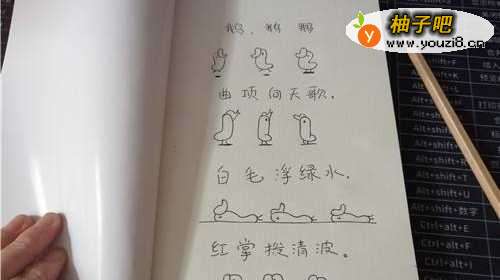 柚子吧
www.youzi8.cn
鹅，鹅 鹅
曲项向天歌.
白毛浮绿水.
红掌拨清波。
Alt+shift+R
Alt+shift+T
Alt+shift+U
Alt+shift+数字
Ctrl+alt+E
Ctrl+alt+F
Ctrl+alt+I